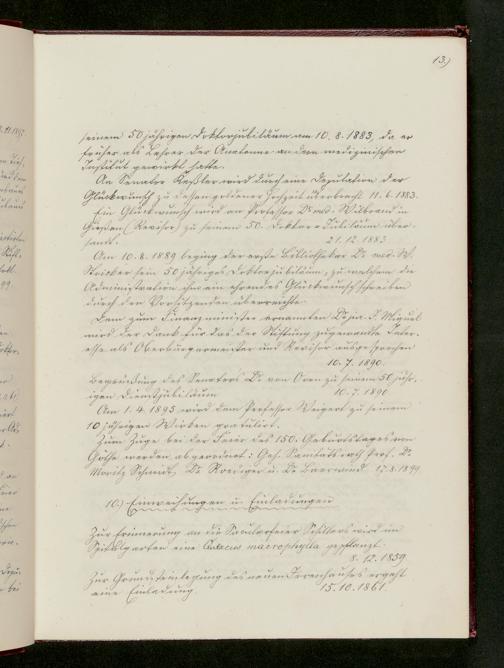 13.)
seinem 50 jährigen Doktorjubiläum am 10. 8. 1883, da er
früher als Lehrer der Anatomie an dem medizinischen
Institut gewirkt hatte.
An Senator Keßler wird durch eine Deputation der
Glückwunsch zu dessen goldener Hochzeit überbracht 11. 6. 1883.
Ein Glückwunsch wird an Professor Dr. med. Wilbrand in
Gießen (Revisor) zu seinem 50. Doktor-Jubiläum über-
sandt. 21. 12. 1883
Am 10. 8. 1889 beging der erste Bibliothekar Dr. med. W.
Stricker sein 50 jähriges Doktorjubiläum, zu welchem die
Administration ihm ein ehrendes Glückwunschschreiben
durch den Vorsitzenden überreichte.
Dem zum Finanzminister ernannten Dr. J. Miquel
wird der Dank für das der Stiftung zugewandte Inter-
esse als Oberbürgermeister und Revisor ausgesprochen
10. 7. 1890.
Begrüßung des Senators Dr. von Oven zu seinem 50 jähr-
igen Dienstjubiläum 10. 7. 1890
Am 1. 4. 1895 wird dem Professor Weigert zu seinem
10 jährigen Wirken gratuliert.
Zum Zuge bei der Feier des 150. Geburtstages von
Göthe werden abgeordnet: Geh. Sanitätsrath Prof. Dr.
Moritz Schmidt, Dr. Roediger u. Dr. Baerwind. 17. 8. 1899
10.) Einweihungen u. Einladungen
Zur Erinnerung an die Säcularfeier Schillers wird im
Spitalgarten eine macrophylla gepflanzt.
8. 12. 1859
Zur Grundsteinlegung des neuen Irrenhauses ergeht
eine Einladung 15. 10. 1861.